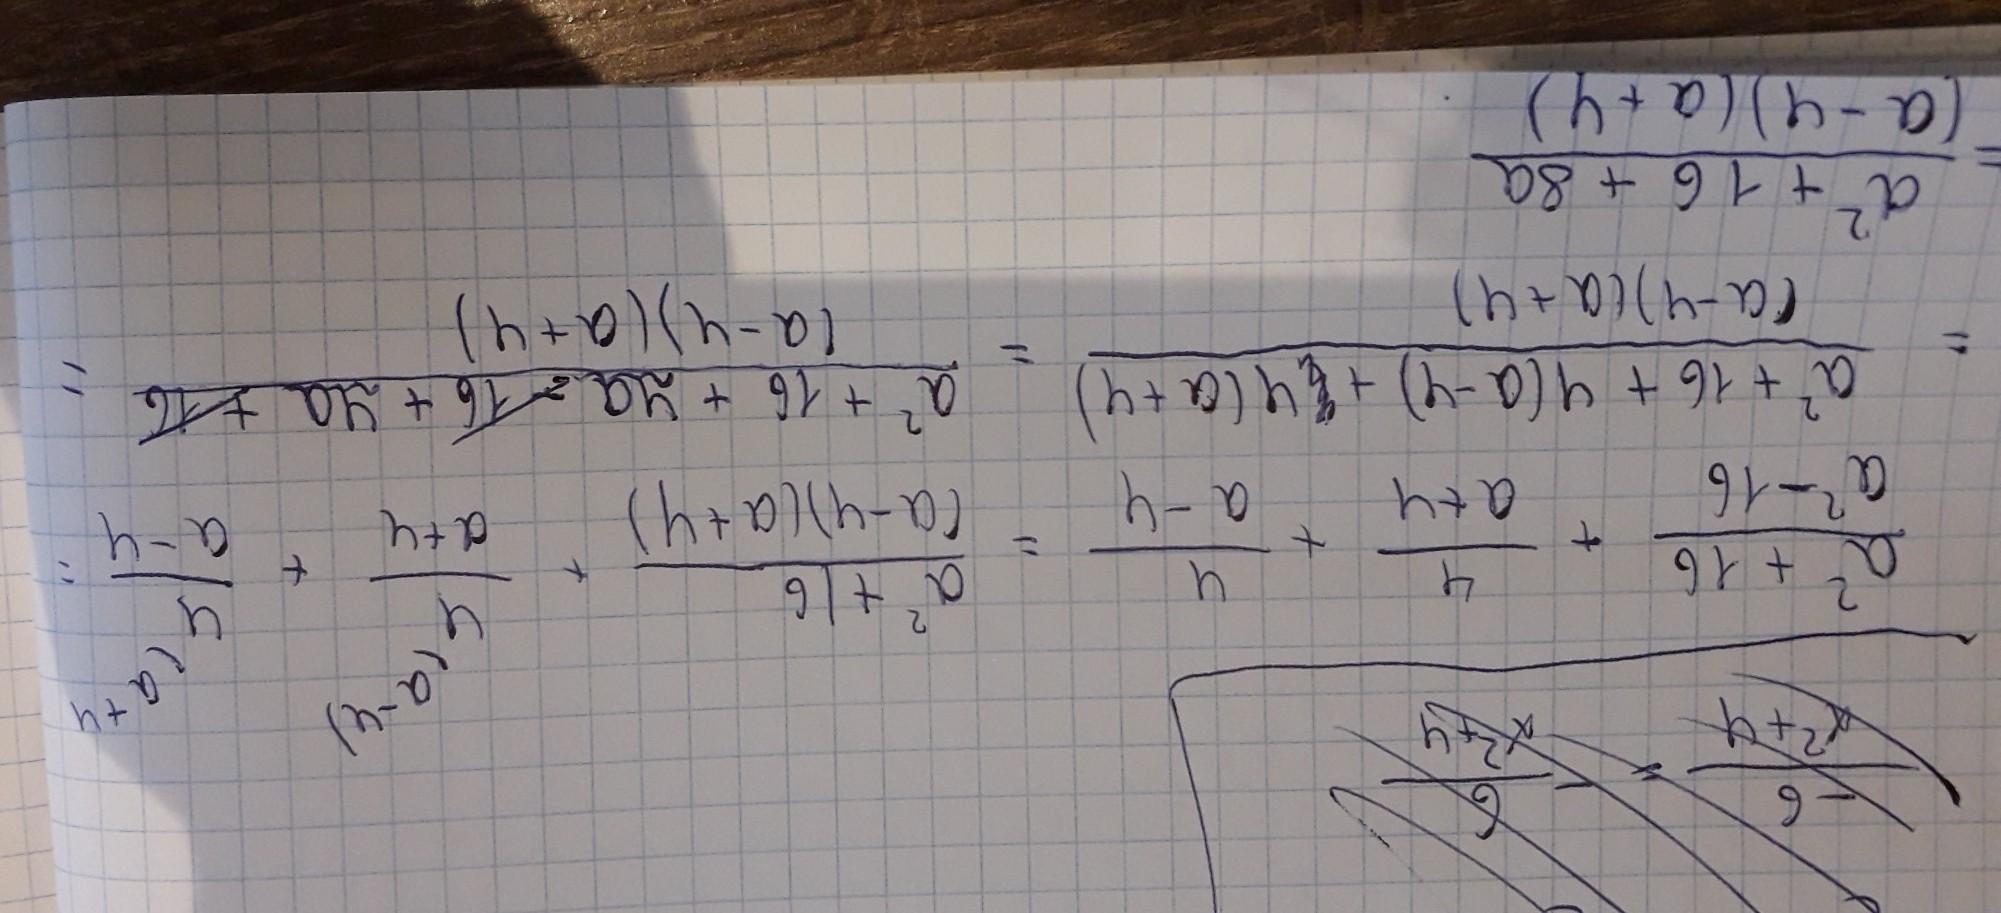 -6 / x²+4 = - 6 / x²+4
(a-4) (a+4
a² + 16 / a² - 16 + 4 / a+4 + 4 / a-4 = a² + 16 / (a-4)(a+4) + 4 / a+4 + 4 / a-4 =
= a² + 16 + 4(a-4) + 4(a+4) / (a-4)(a+4) = a² + 16 + 4a - 16 + 4a + 16 / (a-4)(a+4) =
= a² + 16 + 8a / (a-4)(a+4)